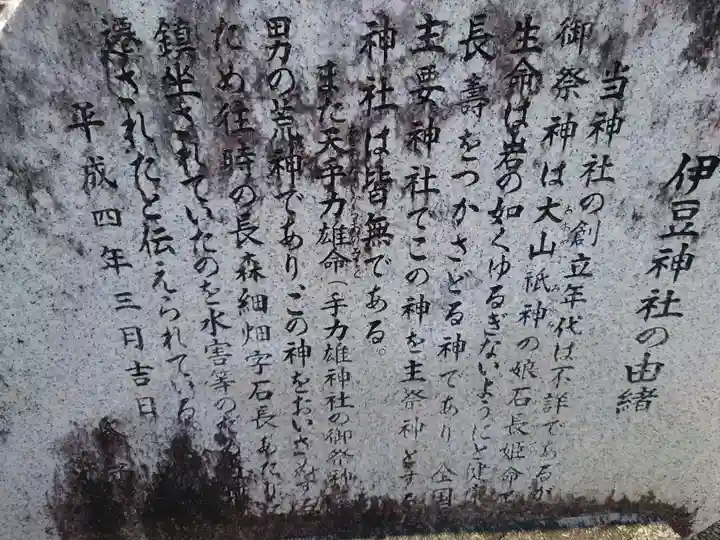 伊豆神社の由緒
当神社の創立年代は不詳であるが
御祭神は大山祇神の娘石長姫命で
生命は岩の如くゆるぎないようにと健
長寿をつかさどる神であり全国
主要神社でこの神を主祭神とする
神社は皆無である。
また天手力雄命(手力雄神社の御祭神
男の荒神であり、この神をおいさめする
ため往時の長森細畑字石長あたり
鎮坐されていたのを水害等のため
遷されたと伝えられている
平成四年三月吉日